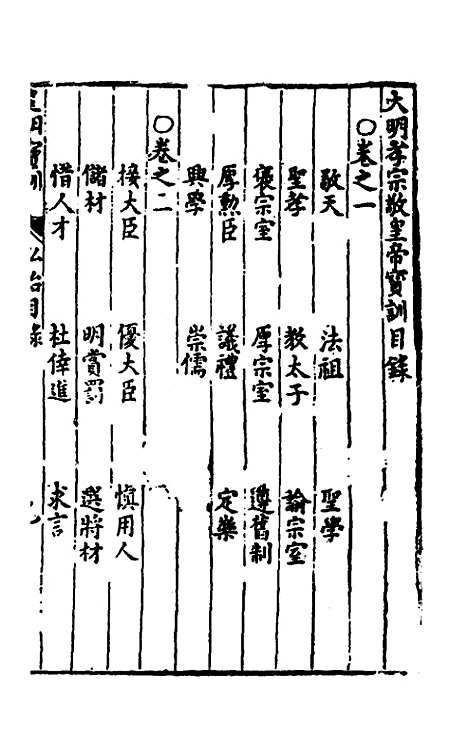 大明孝宗敬皇帝寶訓目錄
○卷之一
敬天 法祖 聖學
聖孝 教太子 諭宗室
褒宗室 厚宗室 遵舊制
厚勲臣 議禮 定樂
興學 崇儒
○卷之二
接大臣 優大臣 慎用人
儲材 明賞罰 選將材
惜人才 杜倖進 求言
皇明寶訓 弘治目錄